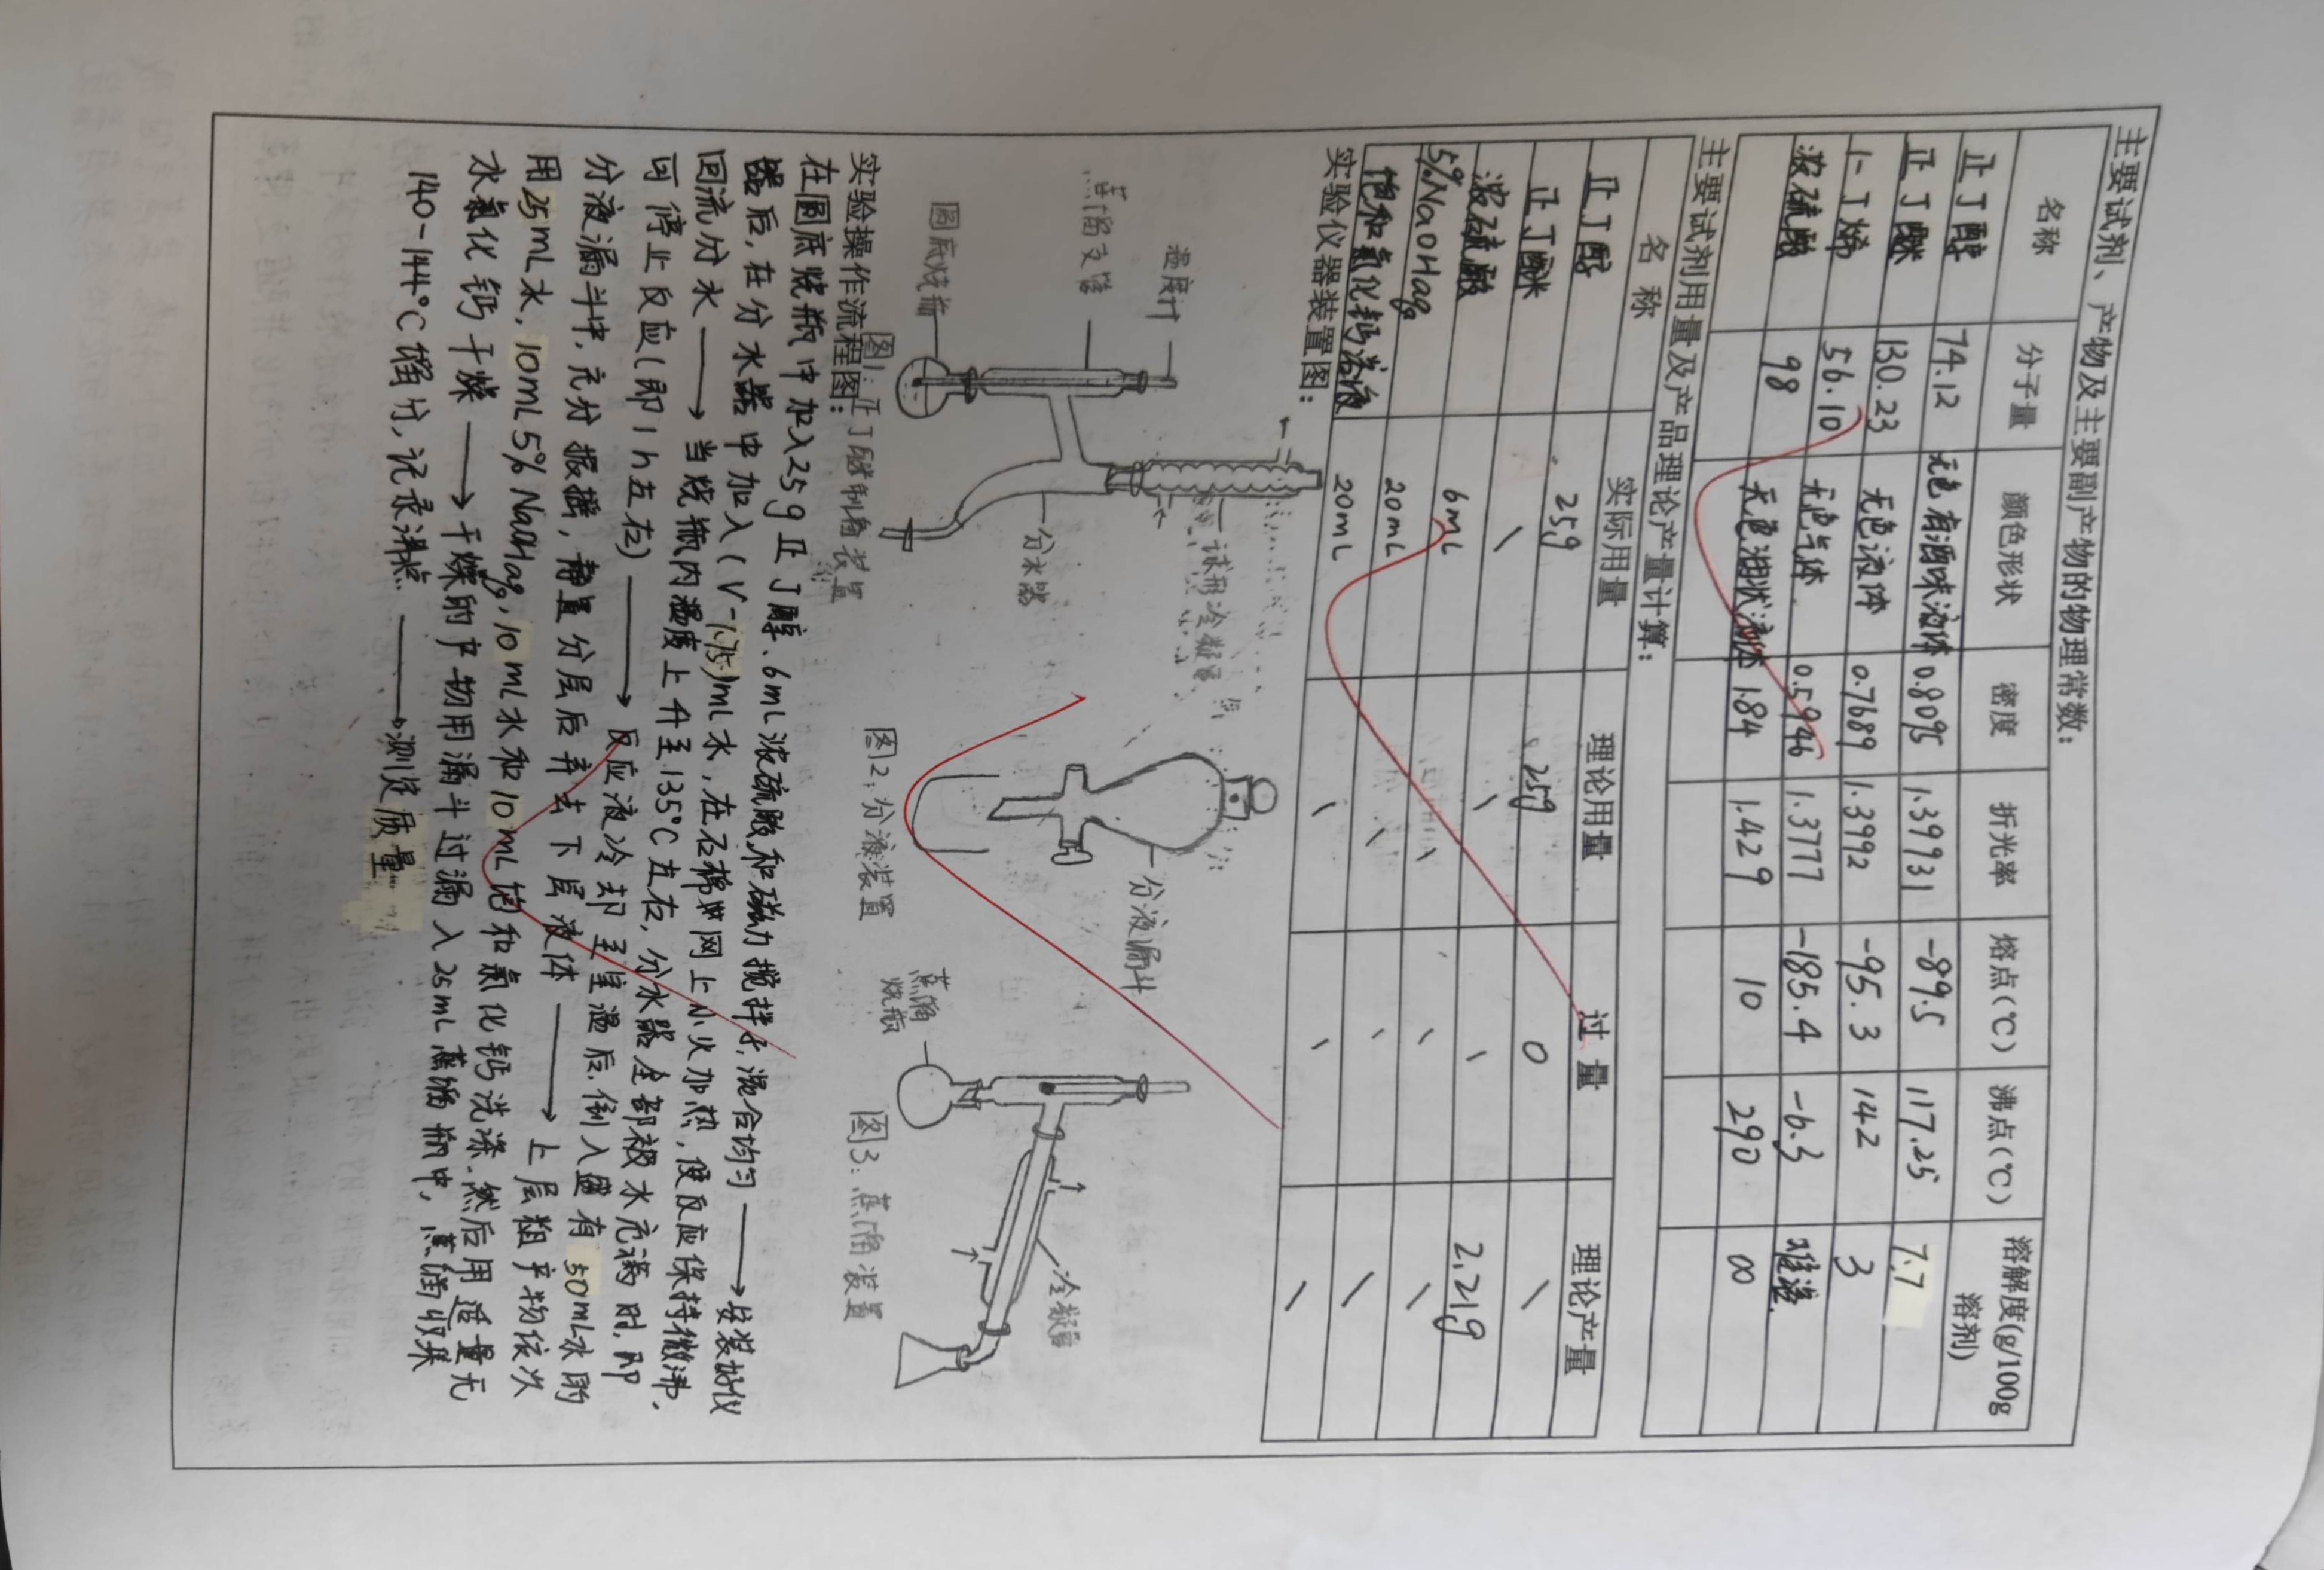 主要试剂、产物及主要副产物的物理常数：
名称 分子量 颜色形状 密度 折光率 熔点(℃) 沸点(℃) 溶解度(g/100g溶剂)
正丁醇 74.12 无色有酒味液体 0.8095 1.39931 -89.5 117.25 7.7
正丁醚 130.23 无色液体 0.7689 1.3992 -95.3 142 3
1-丁烯 56.10 无色气体 0.5946 1.3777 -185.4 -6.3 难溶
浓硫酸 98 无色油状液体 1.84 1.429 10 290 ∞
主要试剂用量及产品理论产量计算：
名称 实际用量 理论用量 过量 理论产量
正丁醇 25g 25g 0 \
正丁醚 \ \ \ 2.21g
浓硫酸 6mL \ \ \
5%NaOHaq 20mL \ \ \
饱和氯化钙溶液 20mL \ \ \
实验仪器装置图：
温度计
蒸馏支管
圆底烧瓶
分水器
图1：正丁醚制备装置
分液漏斗
图2：分液装置
蒸馏烧瓶
冷凝管
图3：蒸馏装置
实验操作流程图：
在圆底烧瓶中加入25g正丁醇、6mL浓硫酸和磁力搅拌子，混合均匀 → 安装好仪
器后，在分水器中加入(V-1.75)mL水，在石棉网上小火加热，使反应保持微沸，
回流分水 → 当烧瓶内温度上升至135℃左右，分水器全部被水充满时，即
可停止反应(即1h左右) → 反应液冷却至室温后，倒入盛有50mL水的
分液漏斗中，充分振摇，静置分层后弃去下层液体 → 上层粗产物依次
用25mL水，10mL5%NaOHaq，10mL水和10mL饱和氯化钙洗涤，然后用适量无
水氯化钙干燥 → 干燥的产物用漏斗过滤入25mL蒸馏瓶中，蒸馏收集
140-144℃馏分，记录沸点 → 测定质量